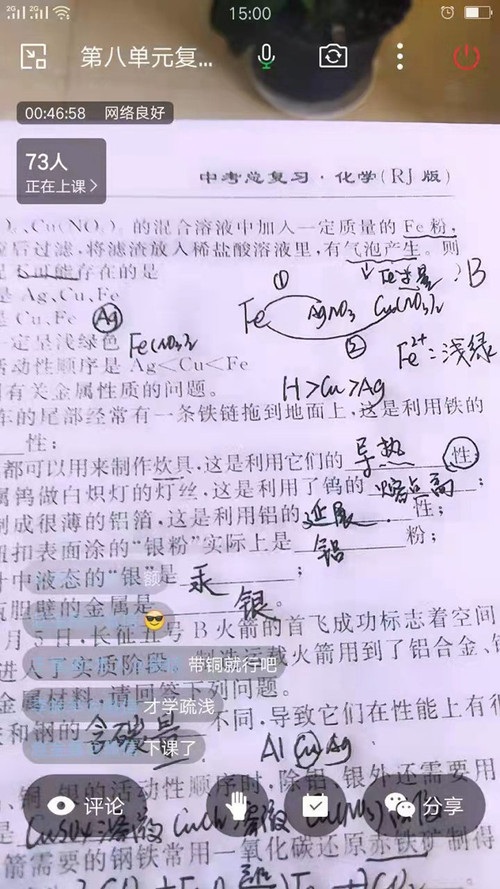 2G 2G 15:00
第八单元复...
00:46:58 网络良好
73人
正在上课
中考总复习·化学(RJ版)
、Cu(NO₃)₂的混合溶液中加入一定质量的Fe粉,
后过滤,将滤渣放入稀盐酸溶液里,有气泡产生。则
可能存在的是
Fe过量
B
是Ag、Cu、Fe
①
是Cu、Fe Ag
Fe AgNO₃ Cu(NO₃)₂
一定呈浅绿色 Fe(NO₃)₂
②
Fe²⁺:浅绿
活动性顺序是Ag<Cu<Fe
有关金属性质的问题。
H>Cu>Ag
车的尾部经常有一条铁链拖到地面上,这是利用铁的
性;
都可以用来制作炊具,这是利用它们的 导热 性;
属钨做白炽灯的灯丝,这是利用了钨的 熔点高 ;
制成很薄的铝箔,这是利用铝的 延展 性;
扣表面涂的“银粉”实际上是 铝 粉;
计中液态的“银”是 汞 ;
瓶胆壁的金属是 银 。
月5日,长征五号B火箭的首飞成功标志着空间
进入了实质阶段。制造运载火箭用到了铝合金、
带铜就行吧
金属材料,请回答下列问题。
才学疏浅
和钢的 含碳量 不同,导致它们在性能上有很
下课了
Al Cu Ag
铜、银的活动性顺序时,除铝、银外还需要用
评论 分享
是 CuSO₄溶液
箭需要的钢铁常用一氧化碳还原赤铁矿制得